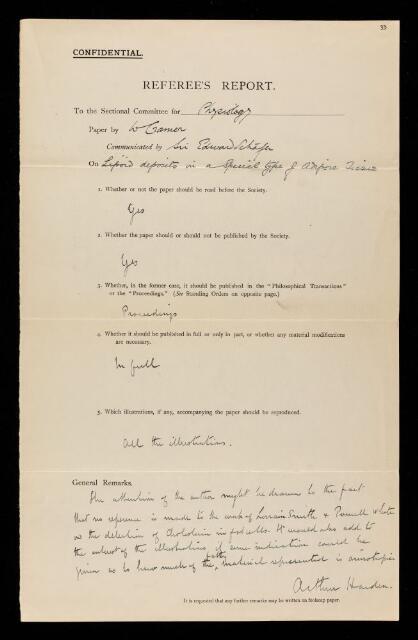 33
CONFIDENTIAL.
REFEREE'S REPORT.
To the Sectional Committee for Physiology
Paper by W Cramer
Communicated by Sir Edward Schäfer
On Lipoid deposits in a Special type of Adipose Tissue
1. Whether or not the paper should be read before the Society.
Yes
2. Whether the paper should or should not be published by the Society.
Yes
3. Whether, in the former case, it should be published in the "Philosophical Transactions"
or the "Proceedings." (See Standing Orders on opposite page.)
Proceedings
4. Whether it should be published in full or only in part, or whether any material modifications
are necessary.
In full
5. Which illustrations, if any, accompanying the paper should be reproduced.
All the illustrations.
General Remarks.
The attention of the author might be drawn to the fact
that no reference is made to the work of Lorrain Smith &
on the detection of Cholesterin in It would also add to
the interest of the illustrations if some indication could be
given as to how much of the material represented is anisotropic
Arthur Harden.
It is requested that any further remarks may be written on foolscap paper.